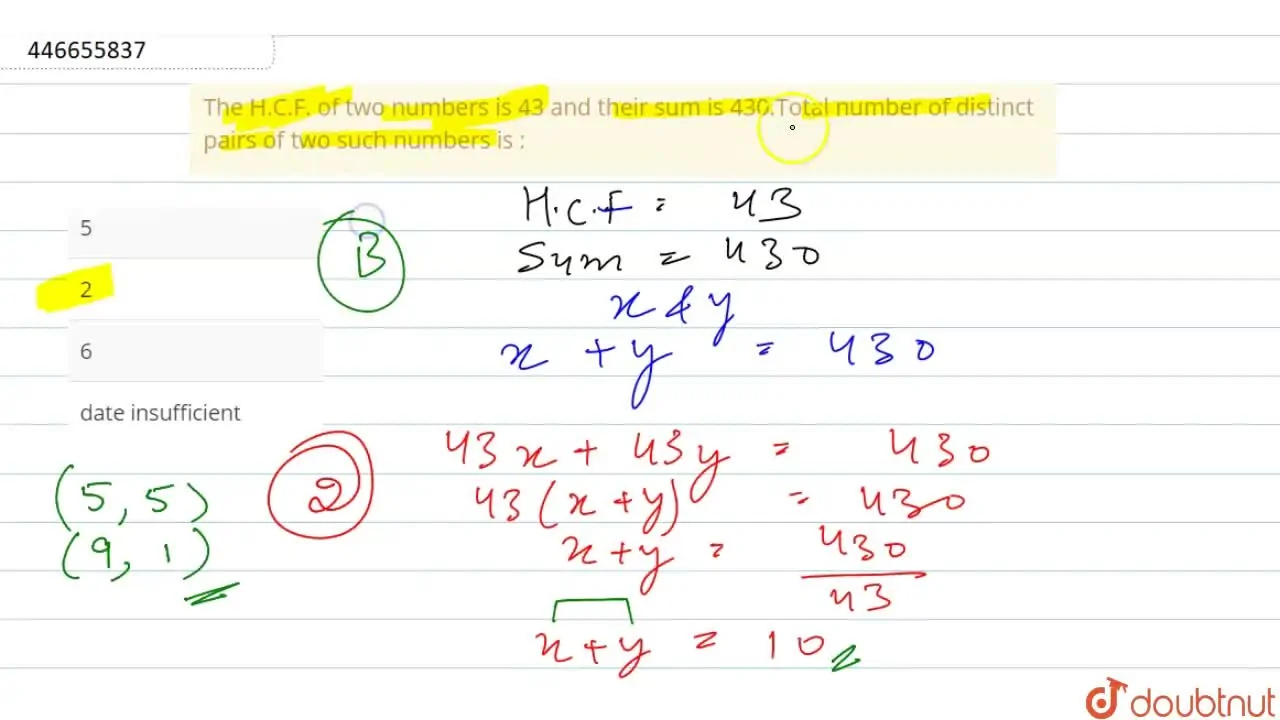 446655837
The H.C.F. of two numbers is 43 and their sum is 430.Total number of distinct
pairs of two such numbers is :
5
2
6
date insufficient
B
H.C.F = 43
Sum = 430
x & y
x + y = 430
43x + 43y = 430
43(x+y) = 430
x+y = 430
43
x+y = 10
2
(5, 5)
(9, 1)
doubtnut